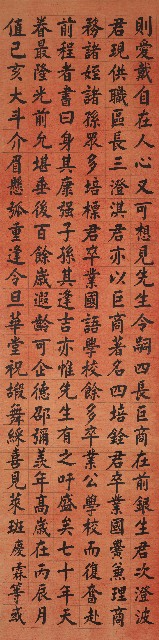 則愛戴自在人心又可想見先生令嗣四長巨商在前銀生君次澄波
君現供職區長三澄淇君亦以巨商著名四培銓君卒業國黌兼理商
務諸姪諸孫眾多培標君卒業國語學校餘多卒業公學校而復奮赴
前程者書曰身其康强子孫其逢吉亦惟先生有之吁盛矣七十年天
眷最隆光前允堪垂後百餘歲遐齡可企德邵彌美年高歲在丙辰月
值己亥大斗介眉懸弧重逢今旦華堂祝嘏舞綵喜見萊班慶霖等或